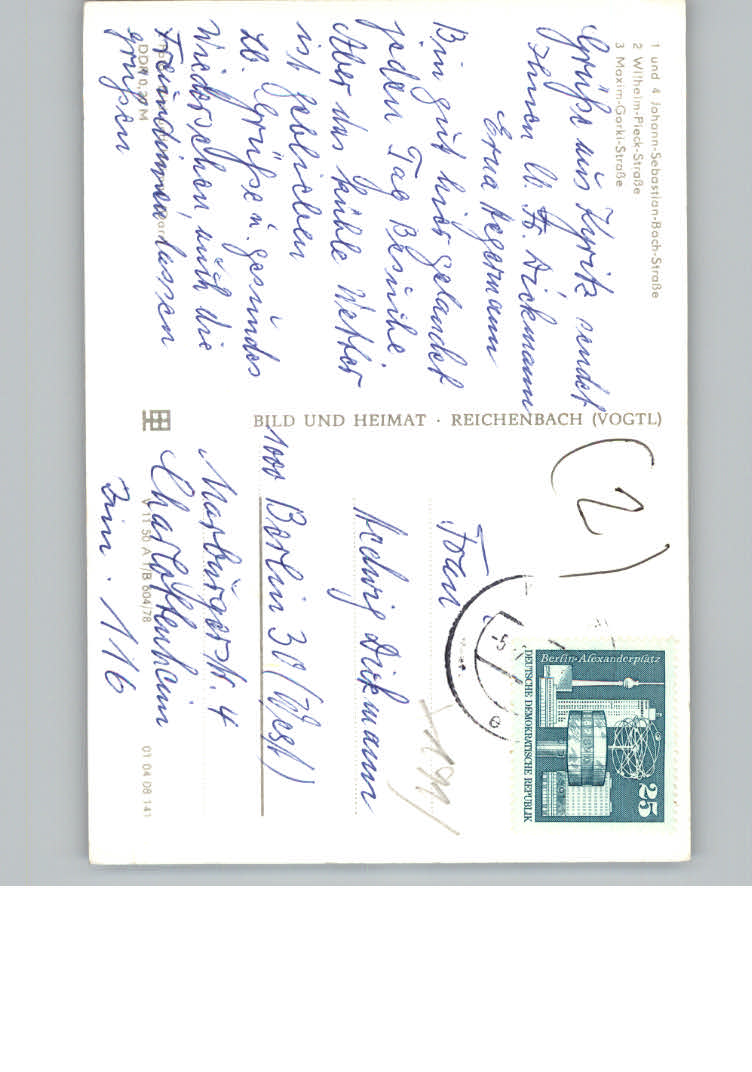 1 und 4 Johann-Sebastian-Bach-Straße
2 Wilhelm-Pieck-Straße
3 Maxim-Gorki-Straße
Grüße aus Kyritz sendet
Ihnen lb. Fr. Dickmann
Erna Hegermann
Bin gut hier gelandet
jeden Tag Besuche.
Aber das kühle Wetter
ist geblieben
Lb. Grüße u. gesundes
Wiedersehen, auch die
Freundinnen lassen
grüßen
DDR 0,20 M
BILD UND HEIMAT · REICHENBACH (VOGTL)
V 11 50 A 1/B 604/78
01 04 08 141
(2)
Frau
Hedwig Dickmann
1000 Berlin 30 (West)
Marburgerstr. 4
Charlottenheim
Zim. 116
Berlin-Alexanderplatz
DEUTSCHE DEMOKRATISCHE REPUBLIK
25
-5.